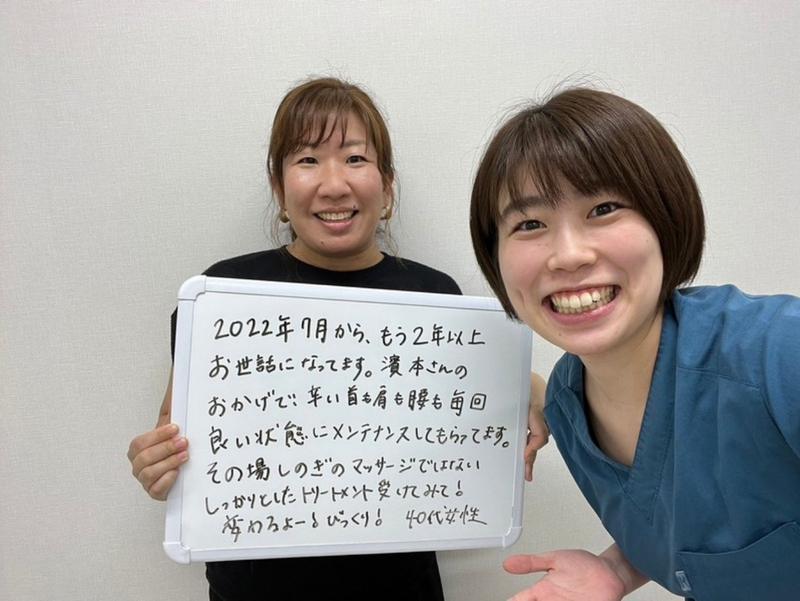 2022年7月から、もう2年以上
お世話になってます。濱本さんの
おかげで、辛い首も肩も腰も毎回
良い状態にメンテナンスしてもらってます。
その場しのぎのマッサージではない
しっかりとしたトリートメント受けてみて!
変わるよー!びっくり! 40代女性